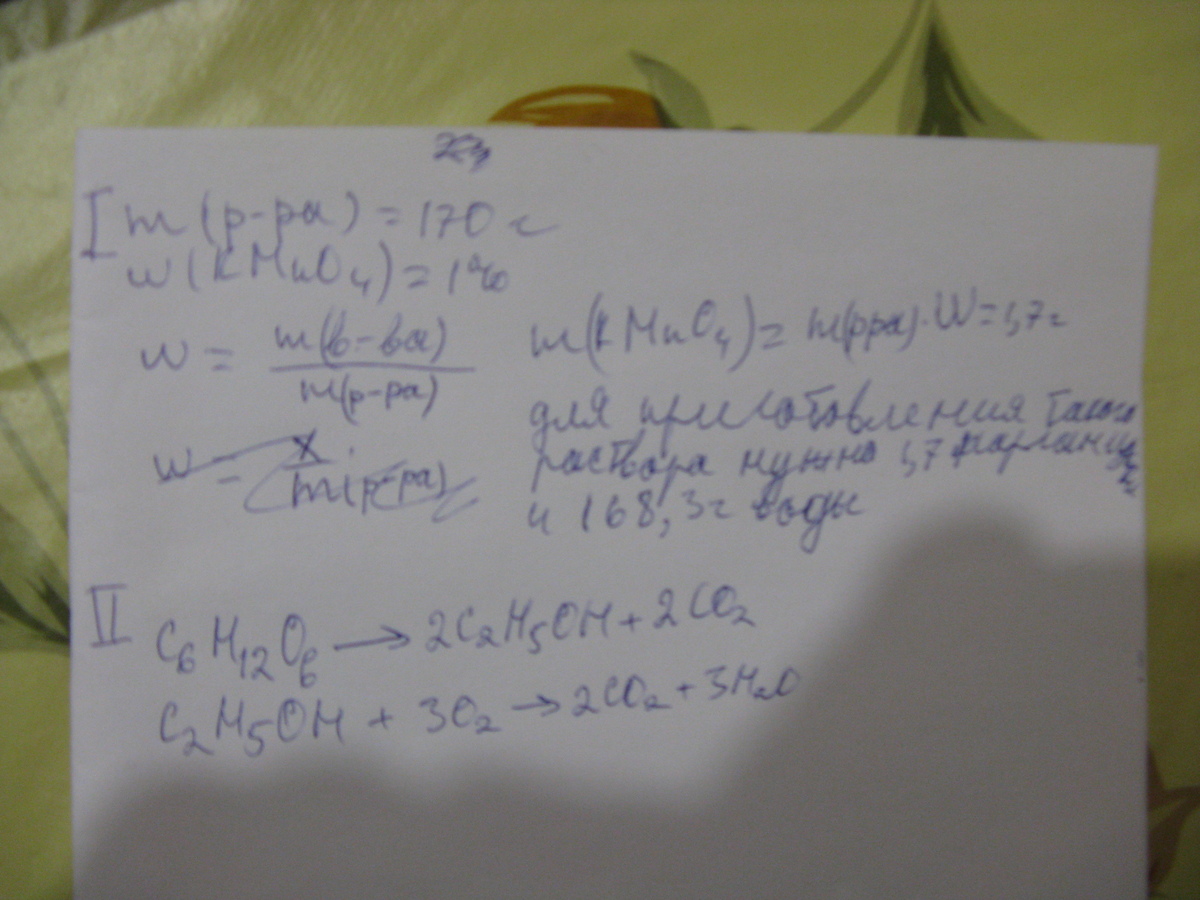 I m(р-ра) = 170 г
w(KMnO4) = 1%
w = m(в-ва) / m(р-ра)
w = x / m(р-ра)
m(KMnO4) = m(рра)·W = 1,7г
для приготовления такого
раствора нужно 1,7
и 168,3г воды
II C6H12O6 → 2C2H5OH + 2CO2
C2H5OH + 3O2 → 2CO2 + 3H2O